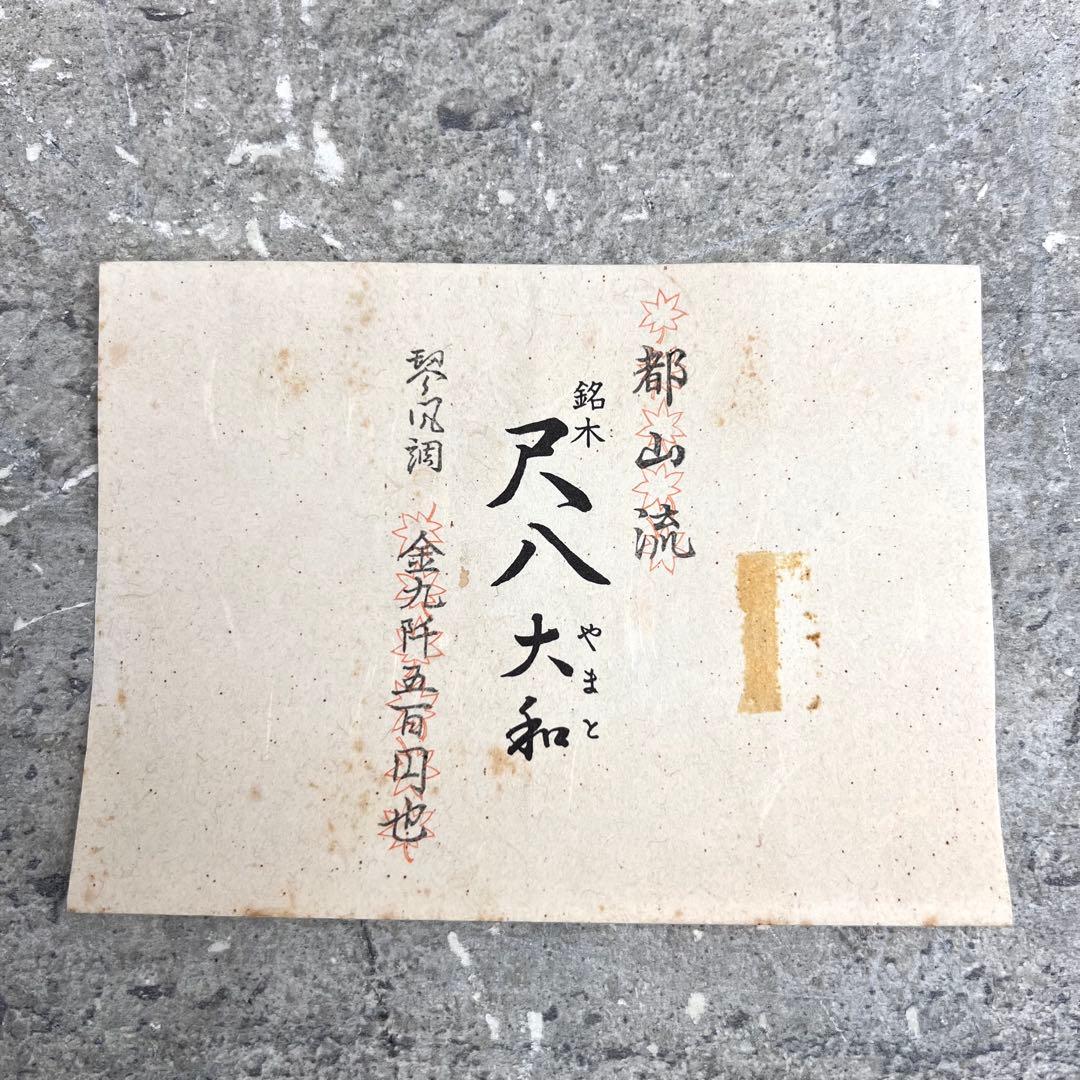 都山流
銘木
尺八 大和
やまと
琴風調
金九阡五百円也